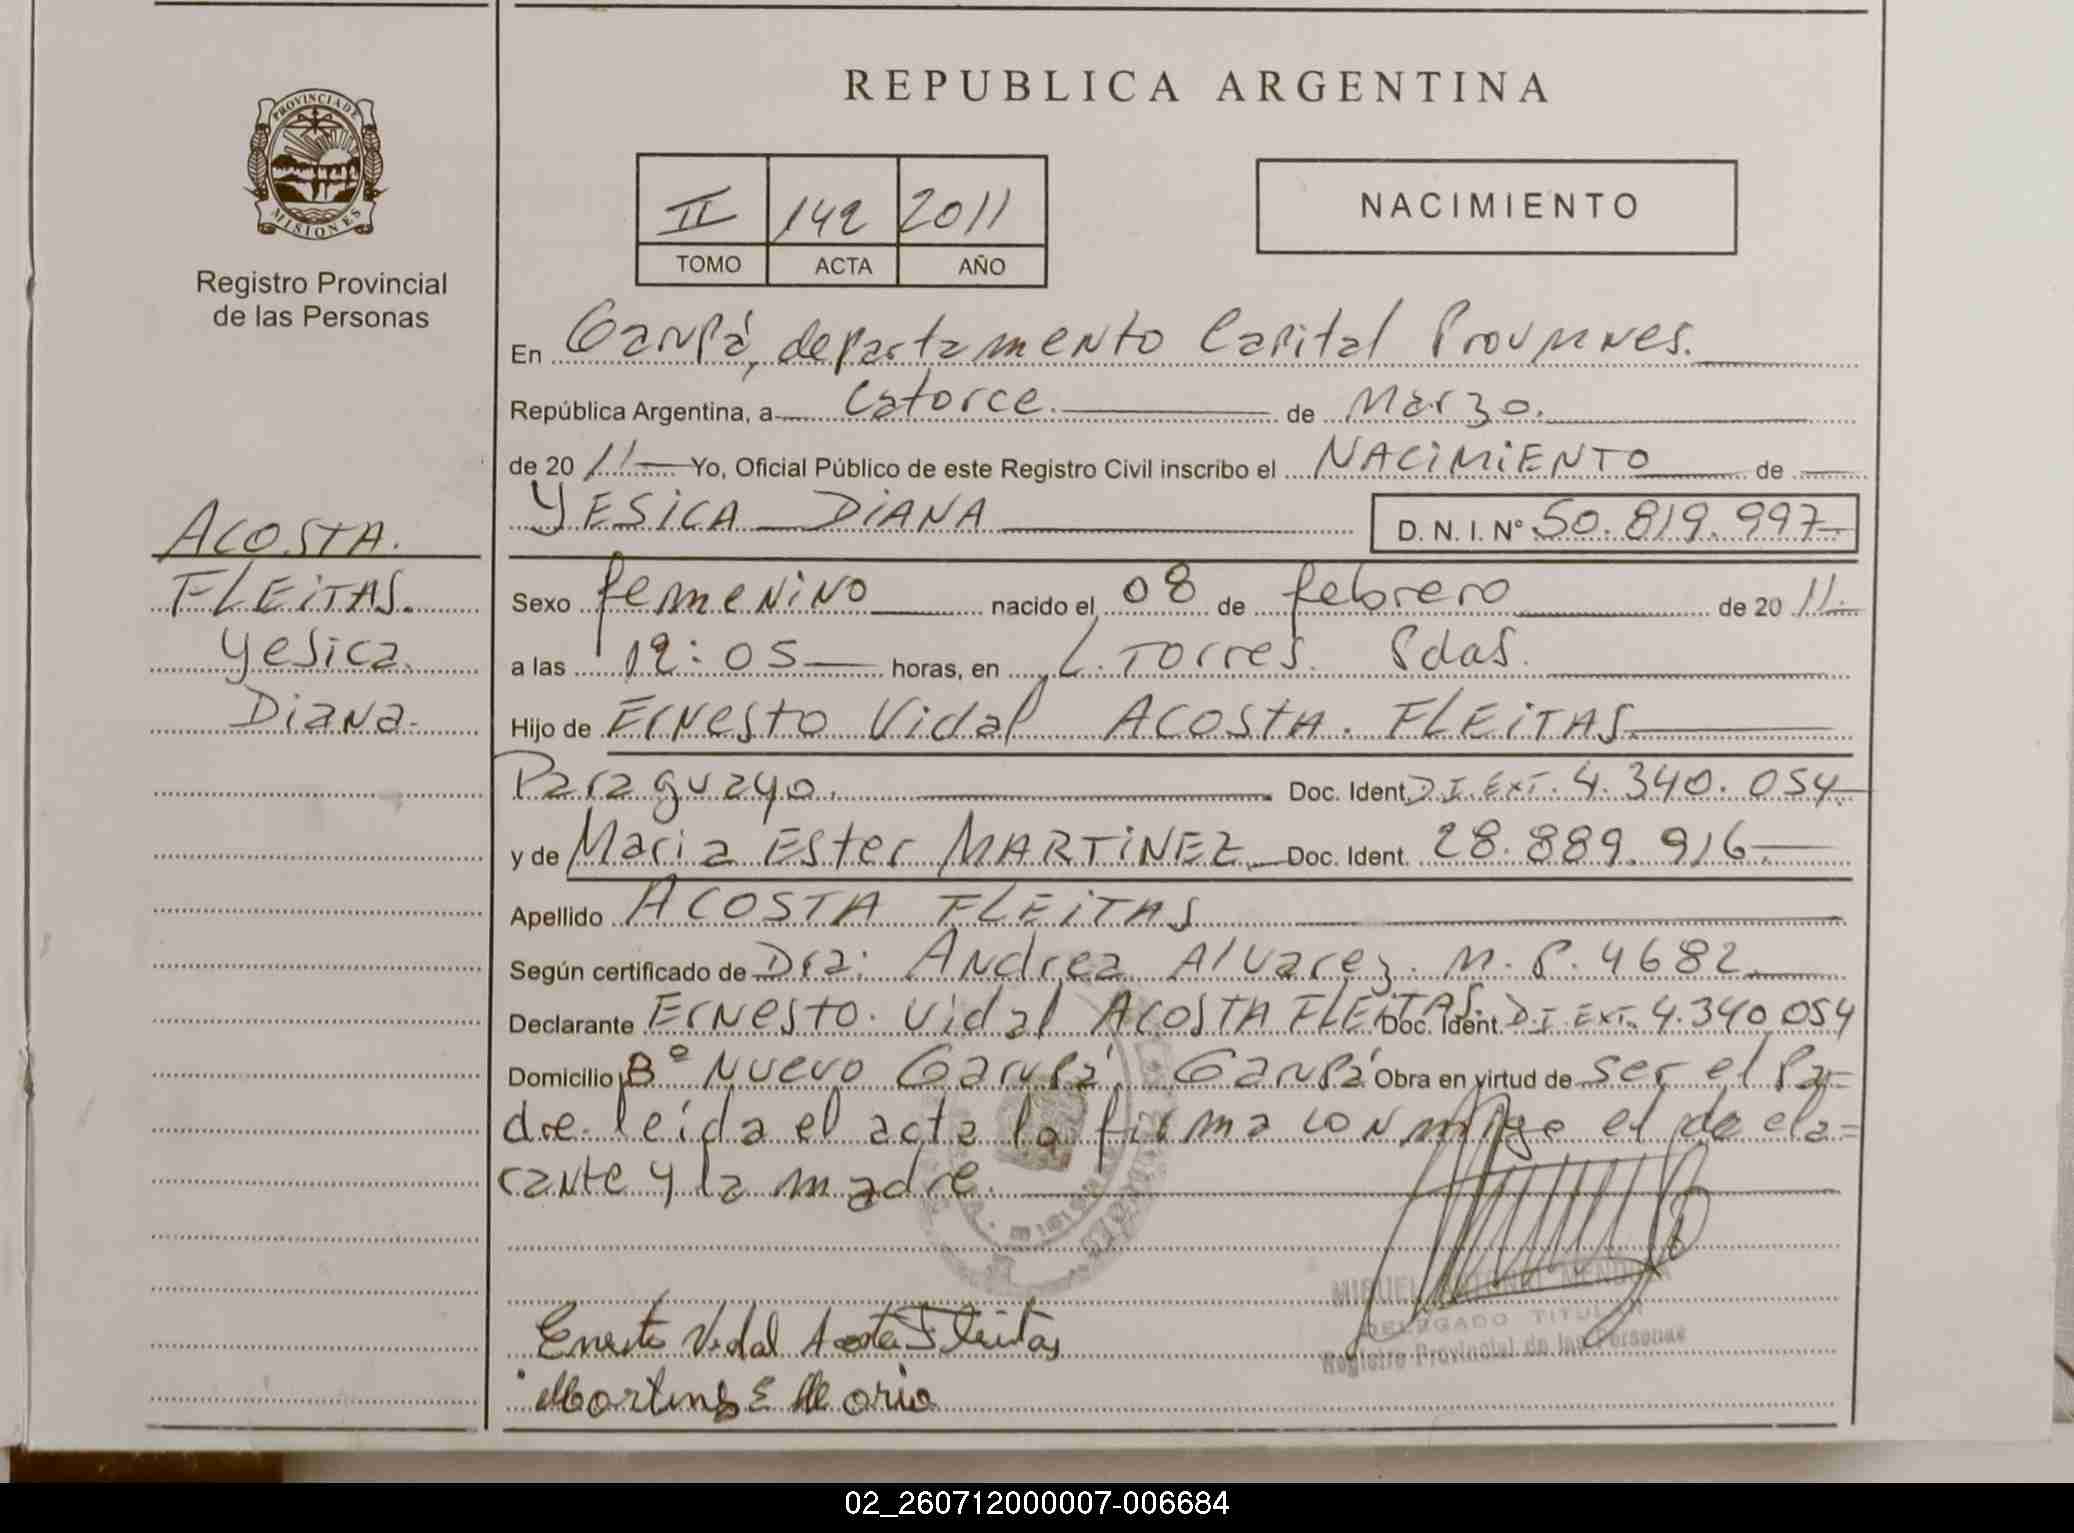 REPUBLICA ARGENTINA
PROVINCIA DE
MISIONES
Registro Provincial
de las Personas
II 142 2011
TOMO ACTA AÑO
NACIMIENTO
En Garupá, departamento Capital
República Argentina, a catorce. de Marzo.
de 20 11 Yo, Oficial Público de este Registro Civil inscribo el NACIMIENTO de
YESICA DIANA D. N. I. Nº 50.819.997
ACOSTA.
FLEITAS.
Yesica
Diana.
Sexo femenino nacido el 08 de febrero de 20 11.
a las 12:05 horas, en L. Torres. Pdas.
Hijo de Ernesto Vidal ACOSTA. FLEITAS.
Paraguayo. Doc. Ident. D.I. EXT. 4.340.054.
y de Maria Ester MARTINEZ Doc. Ident. 28.889.916.
Apellido ACOSTA FLEITAS
Según certificado de Dra: Andrea Alvarez. M.P. 4682.
Declarante Ernesto. Vidal ACOSTA FLEITAS. Doc. Ident. D.I. EXT. 4.340.054
Domicilio Bº Nuevo Garupá. Garupá Obra en virtud de ser el Pa=
dre. leída el acta la firma conmigo el decla=
rante y la madre.
Ernesto Vidal Acosta Fleitas
MIGUEL
DELEGADO TITULAR
Registro Provincial de las Personas
02_260712000007-006684